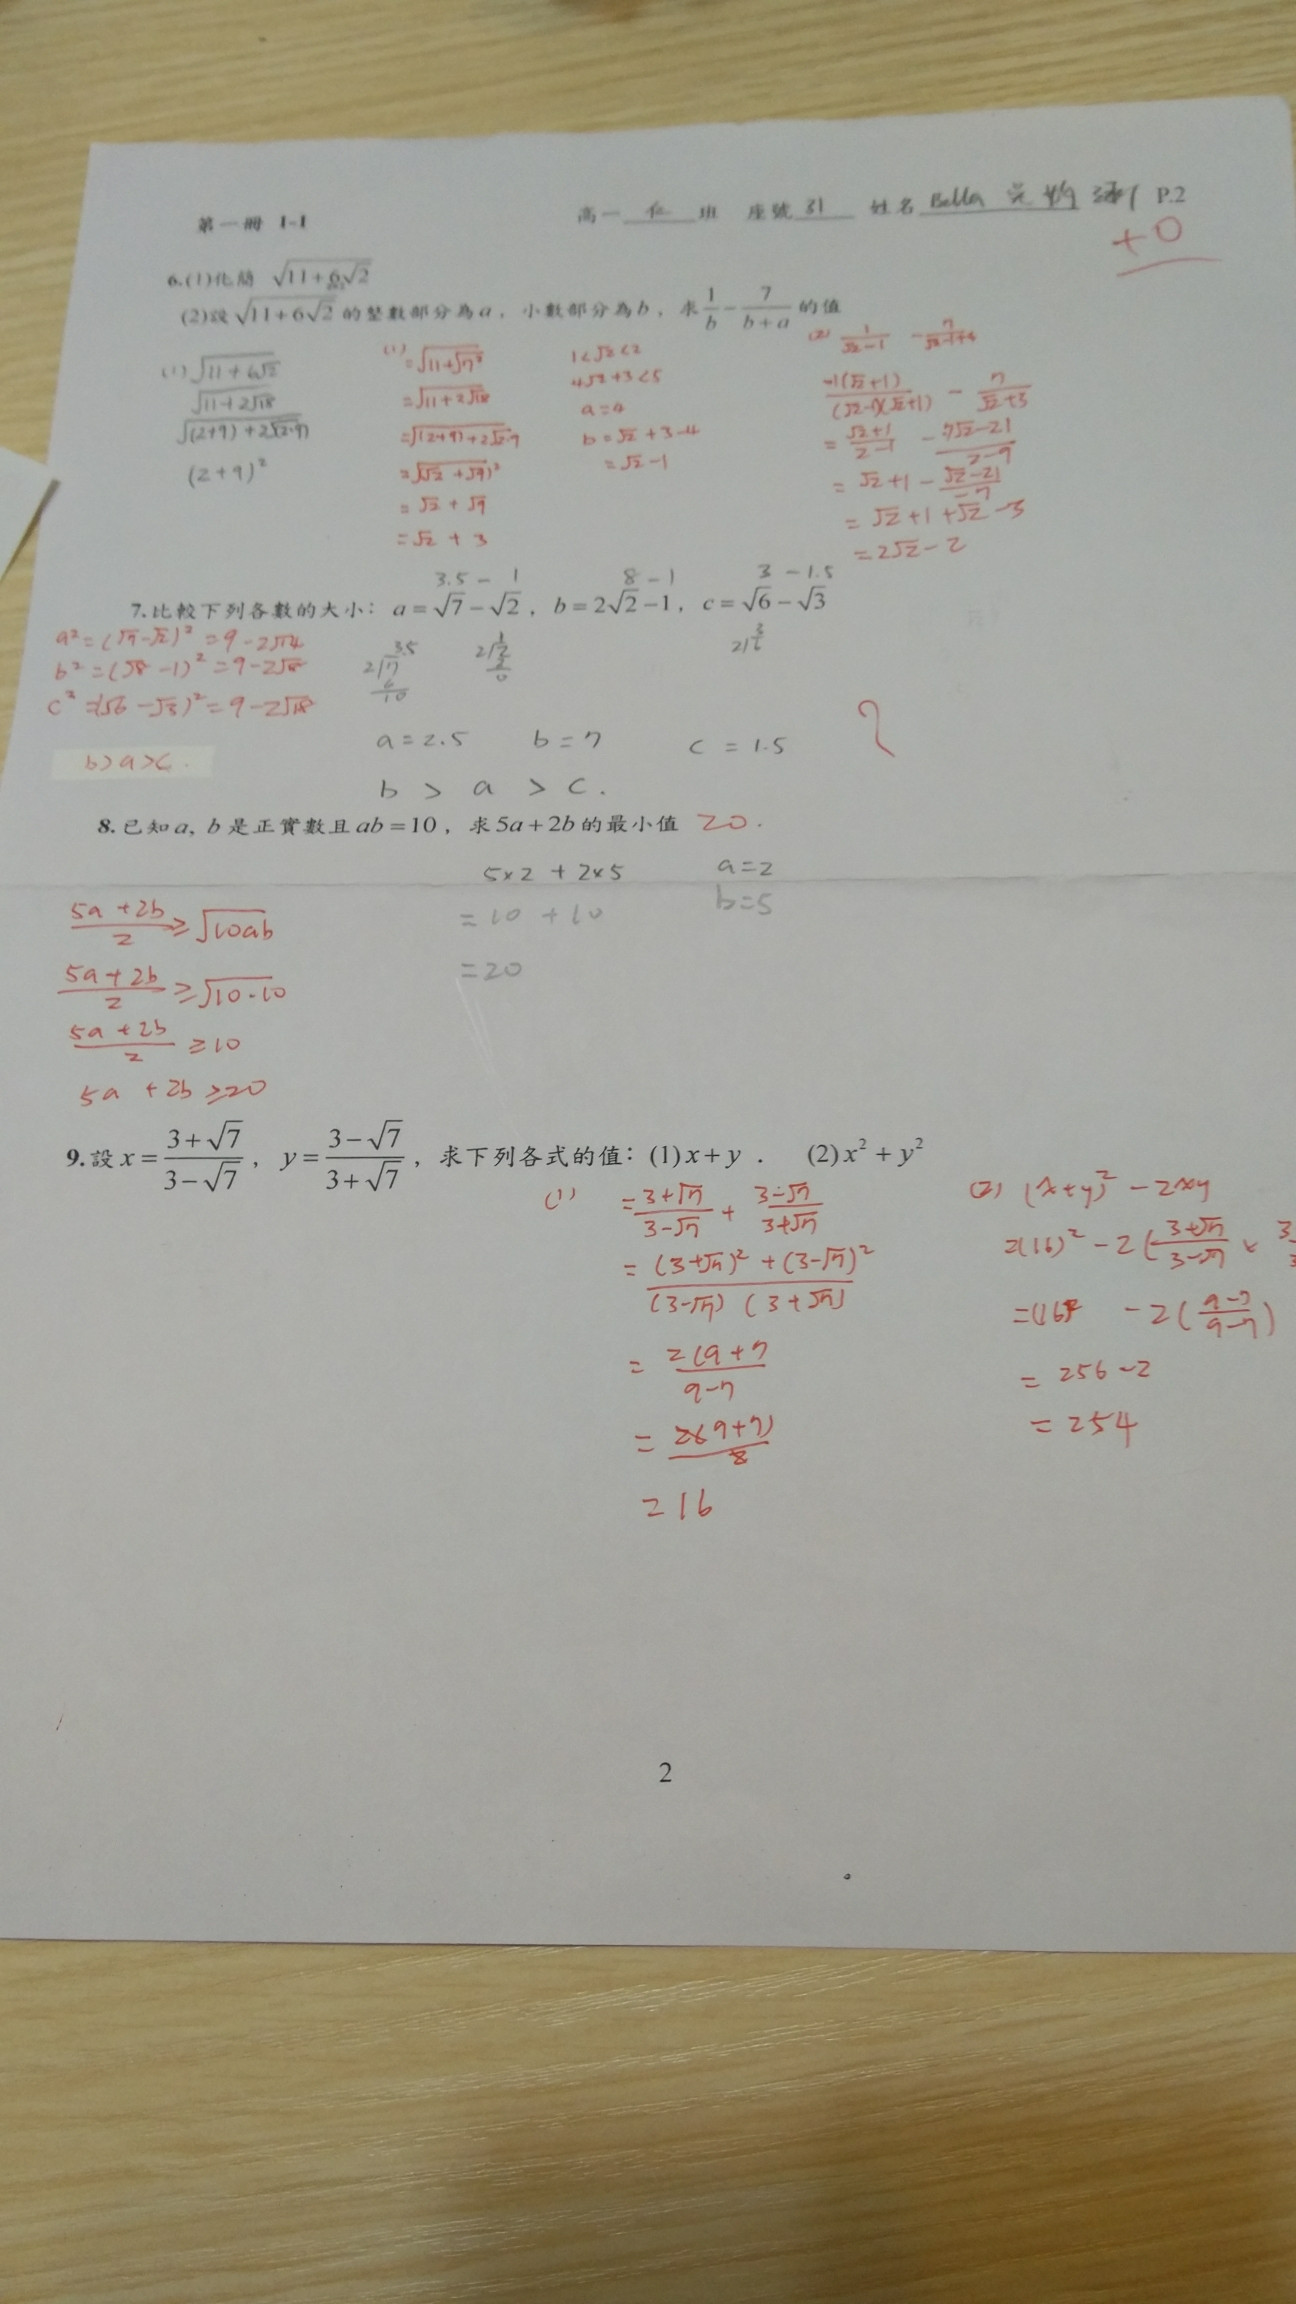 第一冊 1-1
高一 仁 班 座號 31 姓名 Bella P.2
+0
6.(1)化簡 √(11+6√2)
(2)設√(11+6√2)的整數部分為a，小數部分為b，求1/b－7/(b+a)的值
(1) √(11+6√2)
√(11+2√18)
√((2+9)+2√(2·9))
(2+9)²
(1)
=√(11+2√18)
=√((2+9)+2√(2·9))
=√((√2+√9)²)
=√2+√9
=√2+3
1<√2<2
4√2+3<5
a=4
b=√2+3-4
=√2-1
(2) 1/(√2-1) - 7/(√2-1+4)
-1(√2+1)/((√2-1)(√2+1)) - 7/(√2+3)
=(√2+1)/(2-1) - (7√2-21)/(2-9)
=√2+1-(√2-21)/(-7)
=√2+1+√2-3
=2√2-2
3.5 - 1 8 - 1 3 - 1.5
7.比較下列各數的大小：a=√7－√2，b=2√2－1，c=√6－√3
a²=(√7-√2)²=9-2√14
b²=(√8-1)²=9-2√8
c²=(√6-√3)²=9-2√18
b>a>c.
a=2.5 b=7 c=1.5
b > a > c.
8.已知a, b是正實數且ab=10，求5a+2b的最小值 20.
5×2+2×5 a=2
=10+10 b=5
=20
(5a+2b)/2≥√(10ab)
(5a+2b)/2≥√(10·10)
(5a+2b)/2≥10
5a+2b≥20
9.設x=(3+√7)/(3－√7)，y=(3－√7)/(3+√7)，求下列各式的值：(1)x+y． (2)x²+y²
(1) =(3+√7)/(3-√7)+(3-√7)/(3+√7)
=((3+√7)²+(3-√7)²)/((3-√7)(3+√7))
=2(9+7/(9-7)
=2(9+7)/8
=16
(2) (x+y)²-2xy
2(16)²-2((3+√7)/(3-√7)×
-2((9-7)/(9-7))
=256-2
=254
2